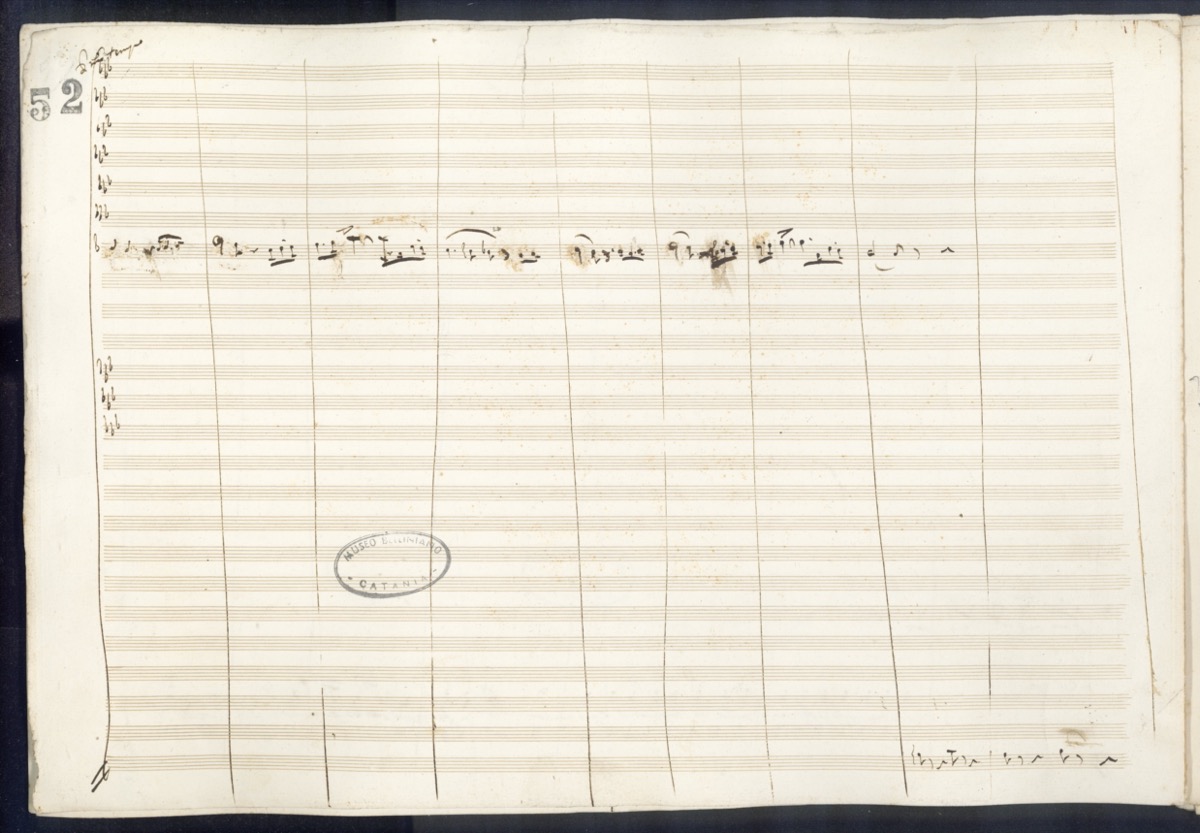 52
MUSEO BELLINIANO
- CATANIA -